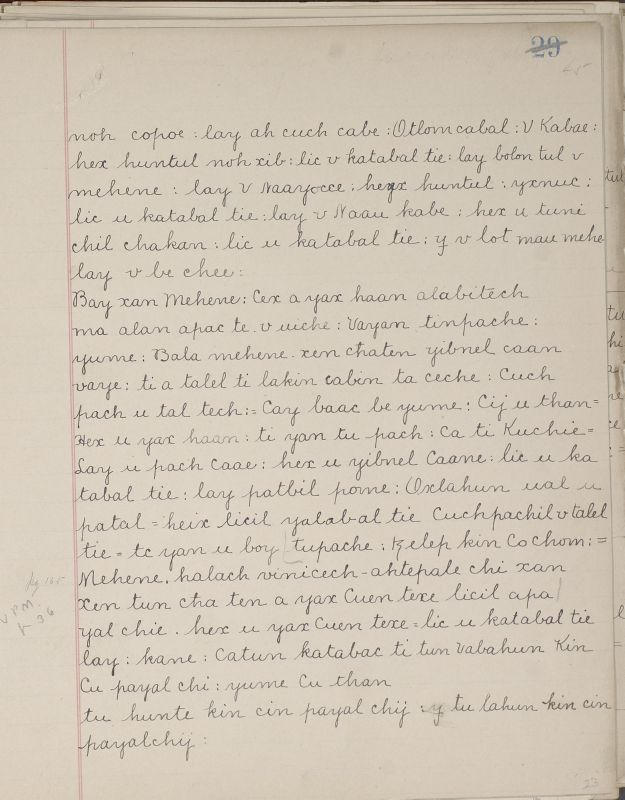 29
noh copoe : lay ah cuch cabe : Otlom cabal : V Kabae :
hex huntul noh xib : lic v katabal tie : lay bolon tul v
mehene : lay v Naayocce ; hex huntul : yxnuc :
lic u katabal tie : lay v Naau kabe : hex u tuni
chil chakan : lic u katabal tie ; y v lot mau mehe
lay v be chee :
Bay xan Mehene : Cex a yax haan alabitech
ma alan apac te . v uiche : Vayan tinpache :
yume : Bala mehene . xen chaten yibnel caan
vaye : ti a talel ti lakin cabin ta ceche : Cuch
pach u tal tech := Cay baac be yume : Cij u than =
Hex u yax haan : ti yan tu pach : Ca ti Kuchie =
Lay u pach Caae : hex u yibnel Caane : lic u ka
tabal tie : lay patbil pome : Oxlahun ual u
patal = heix licil yalab-al tie Cuchpachil v talel
tie = tc yan u boy tupache : Kelep kin Co chom : =
Mehene . halach vinicech - ahtepale chi xan
pg 165
Xen tun cha ten a yax Cuen texe licil apa
V PM.
K 36
yal chie . hex u yax Cuen texe = lic u katabal tie
lay : kane : Catun katabac ti tun Vabahun Kin
Cu payal chi : yume Cu than
tu hunte kin cin payal chij : y tu lahun kin cin
payalchij :
23